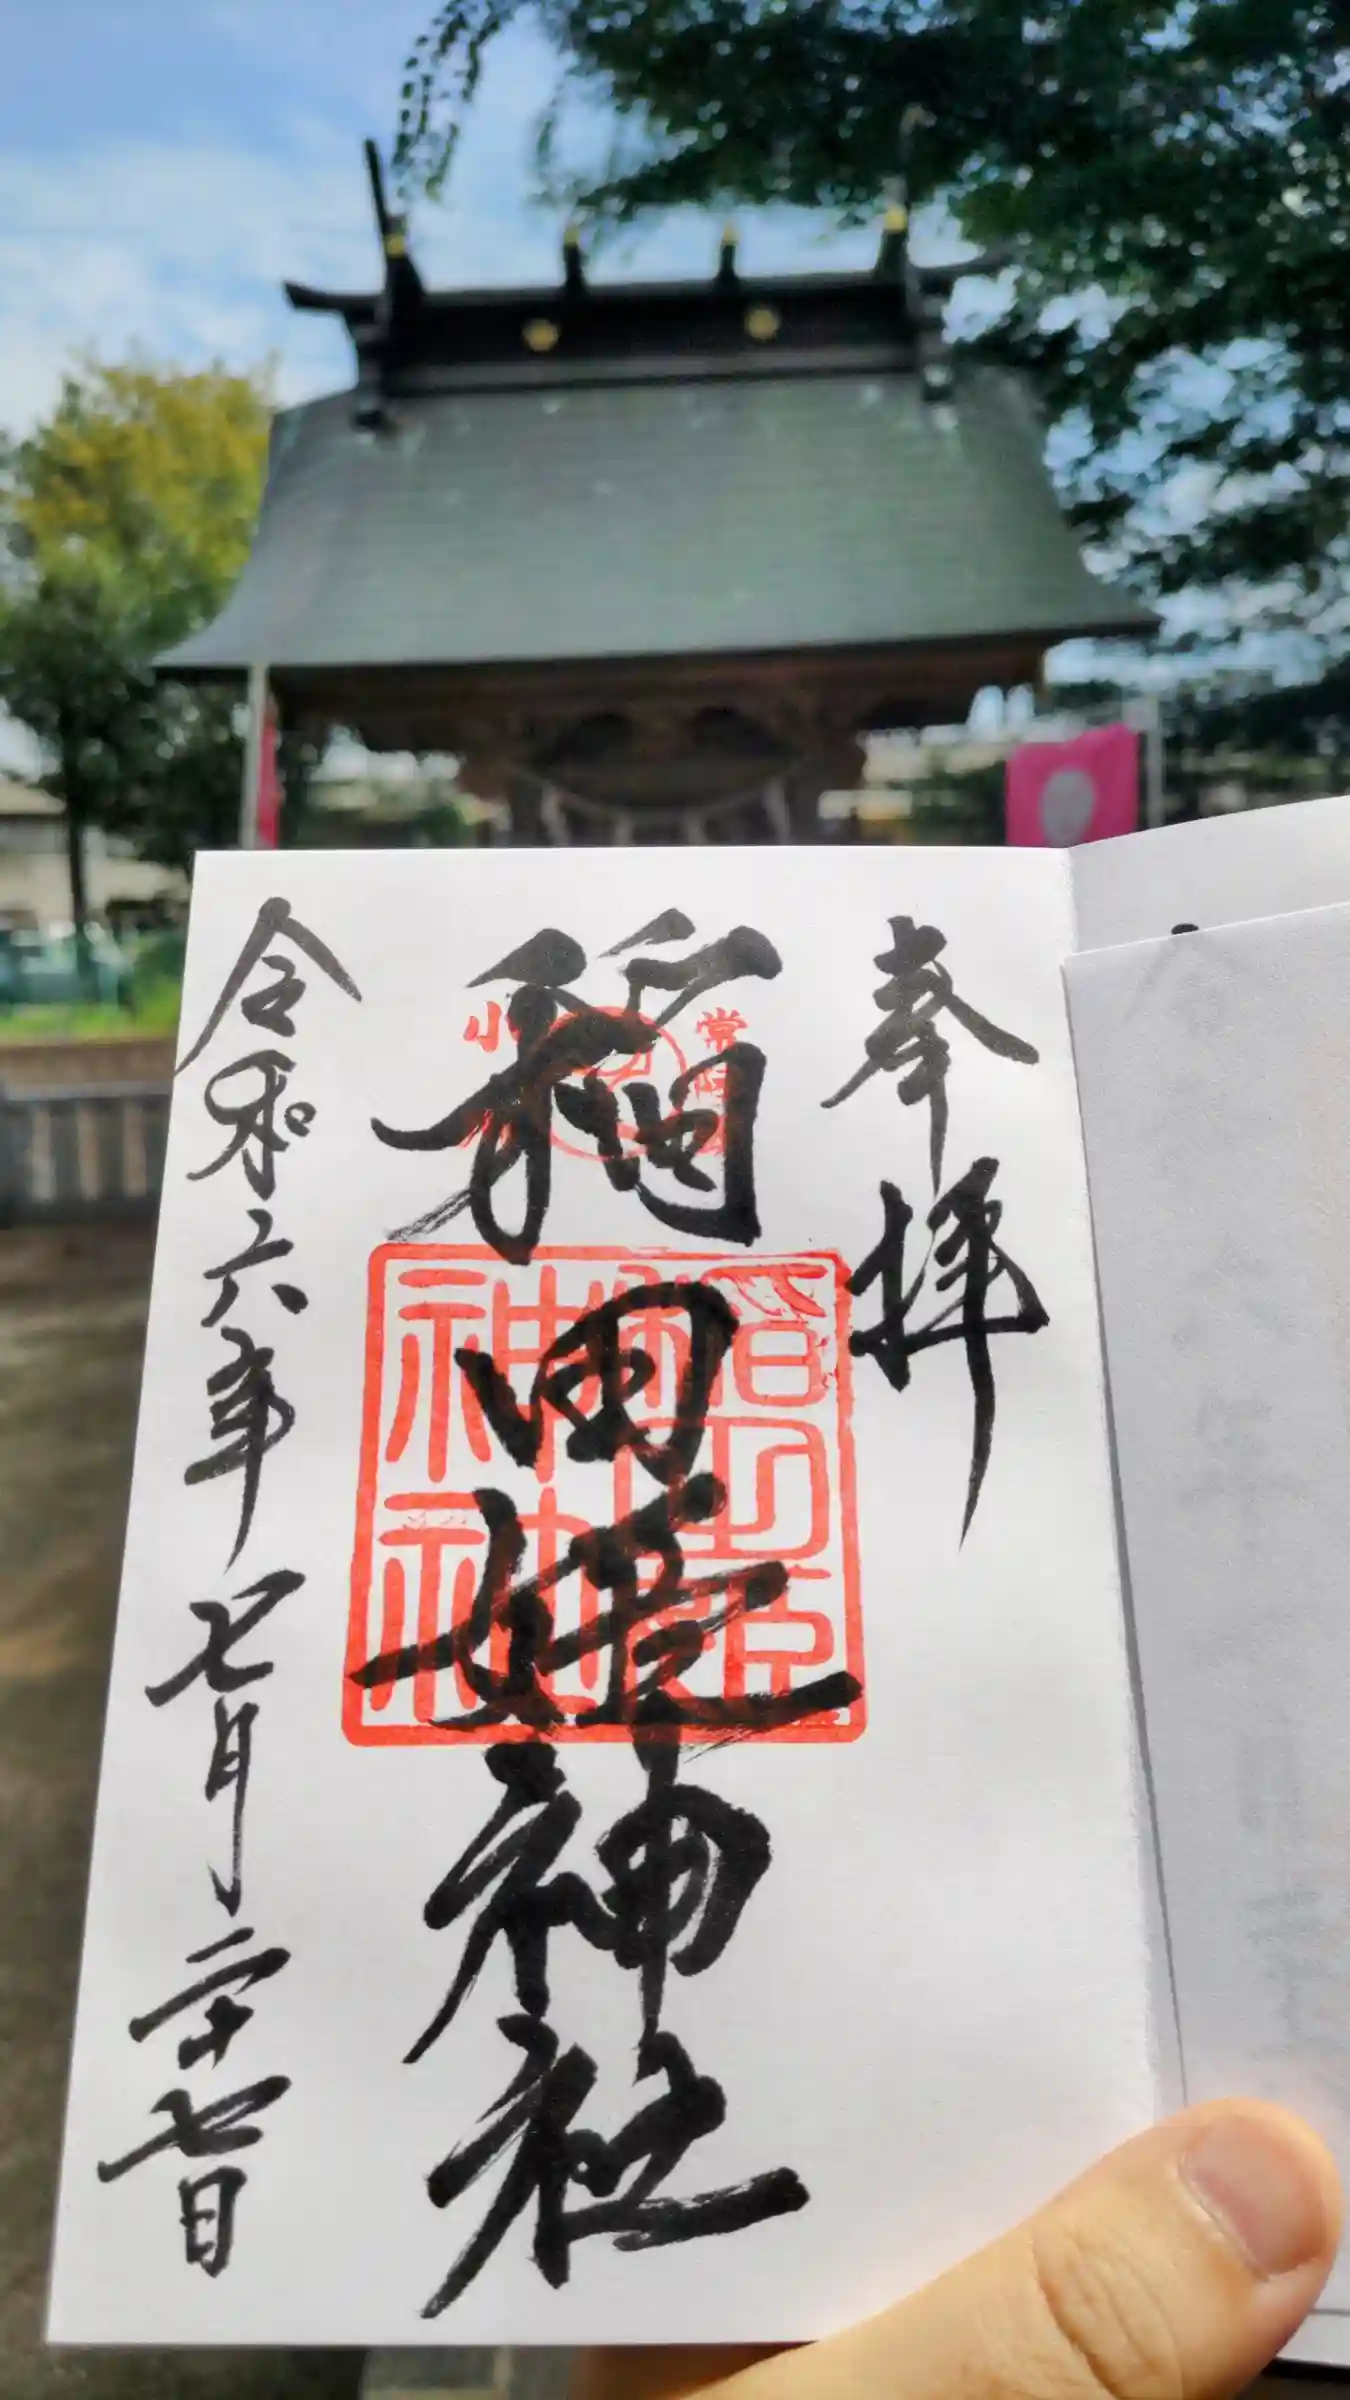 奉拝
稲田姫神社
稲田姫
神社
令和六年七月二十七日